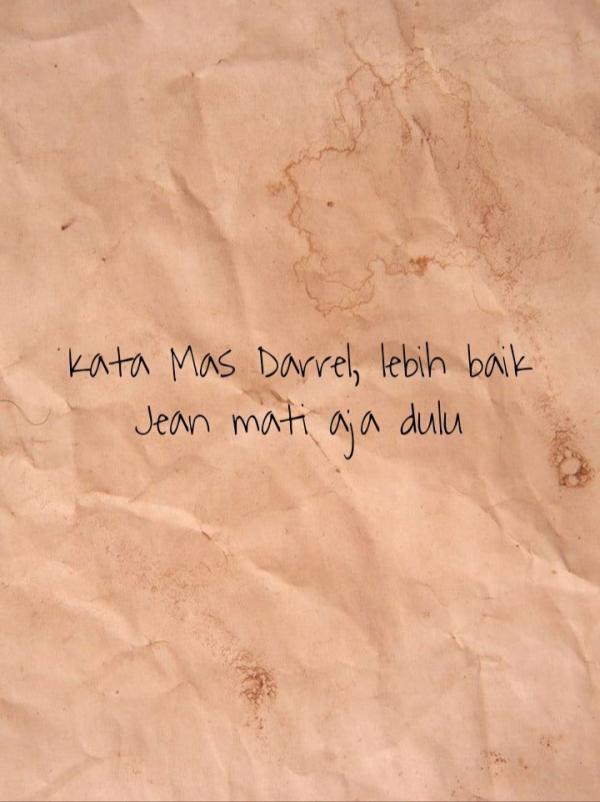 Kata Mas Darrel, lebih baik
Jean mati aja dulu